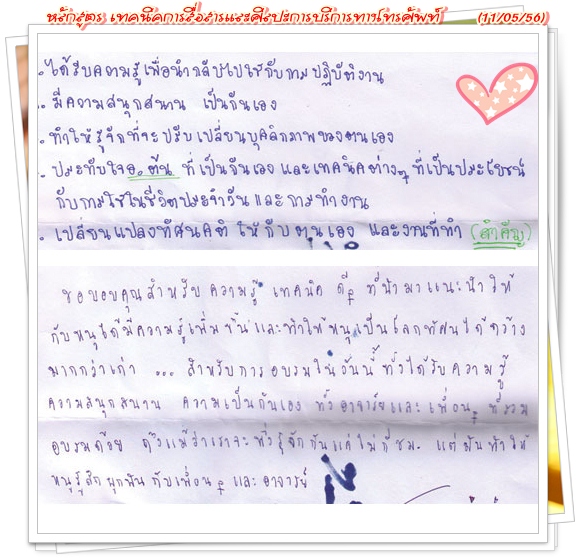 หลักสูตร เทคนิคการสื่อสารและศิลปะการบริการทางโทรศัพท์ (11/05/56)
- ได้รับความรู้เพื่อนำกลับไปใช้กับการปฏิบัติงาน
- มีความสนุกสนาน เป็นกันเอง
- ทำให้รู้จักที่จะปรับเปลี่ยนบุคลิกภาพของตนเอง
- ประทับใจอ.ต้น ที่เป็นกันเอง และเทคนิคต่างๆ ที่เป็นประโยชน์
กับการใช้ในชีวิตประจำวัน และการทำงาน
- เปลี่ยนแปลงทัศนคติ ให้กับตนเอง และงานที่ทำ (สำคัญ)
ขอบอบคุณสำหรับความรู้ เทคนิค ดีๆ ที่นำมาแนะนำให้
กับหนูได้มีความรู้เพิ่มขึ้นและทำให้หนูเป็นโลกทัศน์ได้กว้าง
มากกว่าเก่า ... สำหรับการอบรมในวันนี้ทั้งได้รับความรู้
ความสนุกสนาน ความเป็นกันเอง ทั้งอาจารย์และเพื่อนๆ ที่ร่วม
อบรมด้วย ถึงแม้ว่าเราจะพึ่งรู้จักกันแค่ไม่กี่ชม. แต่มันทำให้
หนูรู้สึกผูกพันกับเพื่อนๆ และอาจารย์